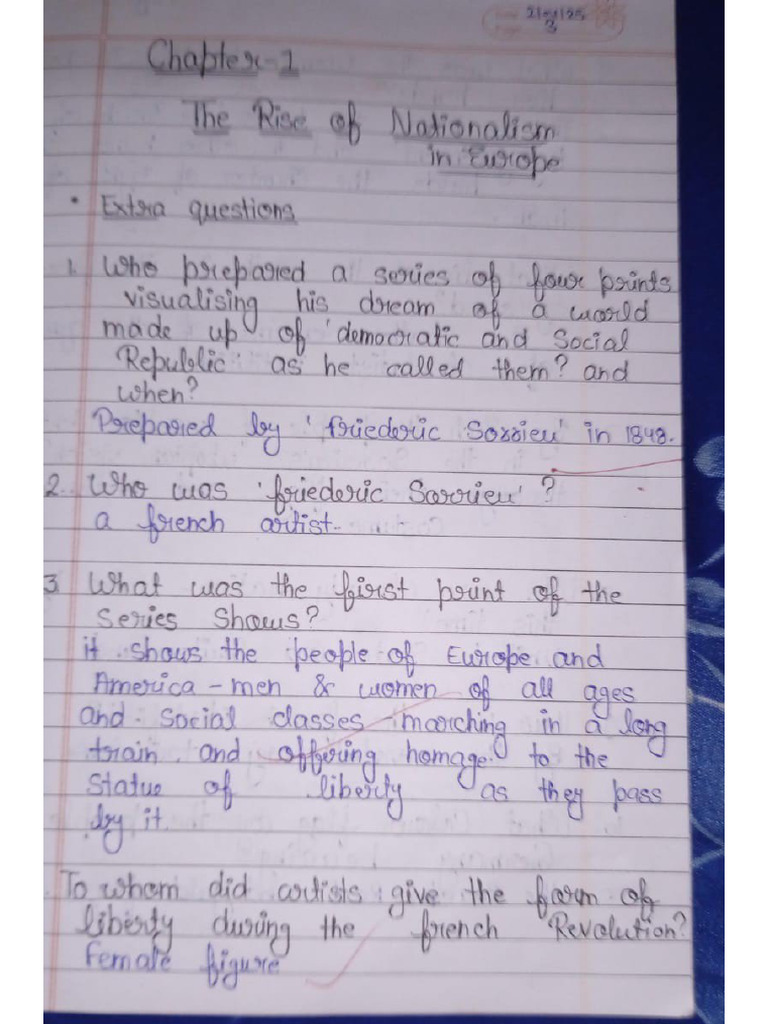 Chapter-1
The Rise of Nationalism
in Europe
• Extra questions
1. Who prepared a series of four prints
visualising his dream of a world
made up of 'democratic and Social
Republic' as he called them? and
when?
Prepared by 'friederic Sorrieu' in 1848.
2. Who was 'friederic Sorrieu'?
a french artist.
3 What was the first print of the
Series Shows?
it shows the people of Europe and
America - men & women of all ages
and social classes - marching in a long
train and offering homage to the
Statue of liberty as they pass
by it.
To whom did artists give the form of
liberty during the french Revolution?
Female figure